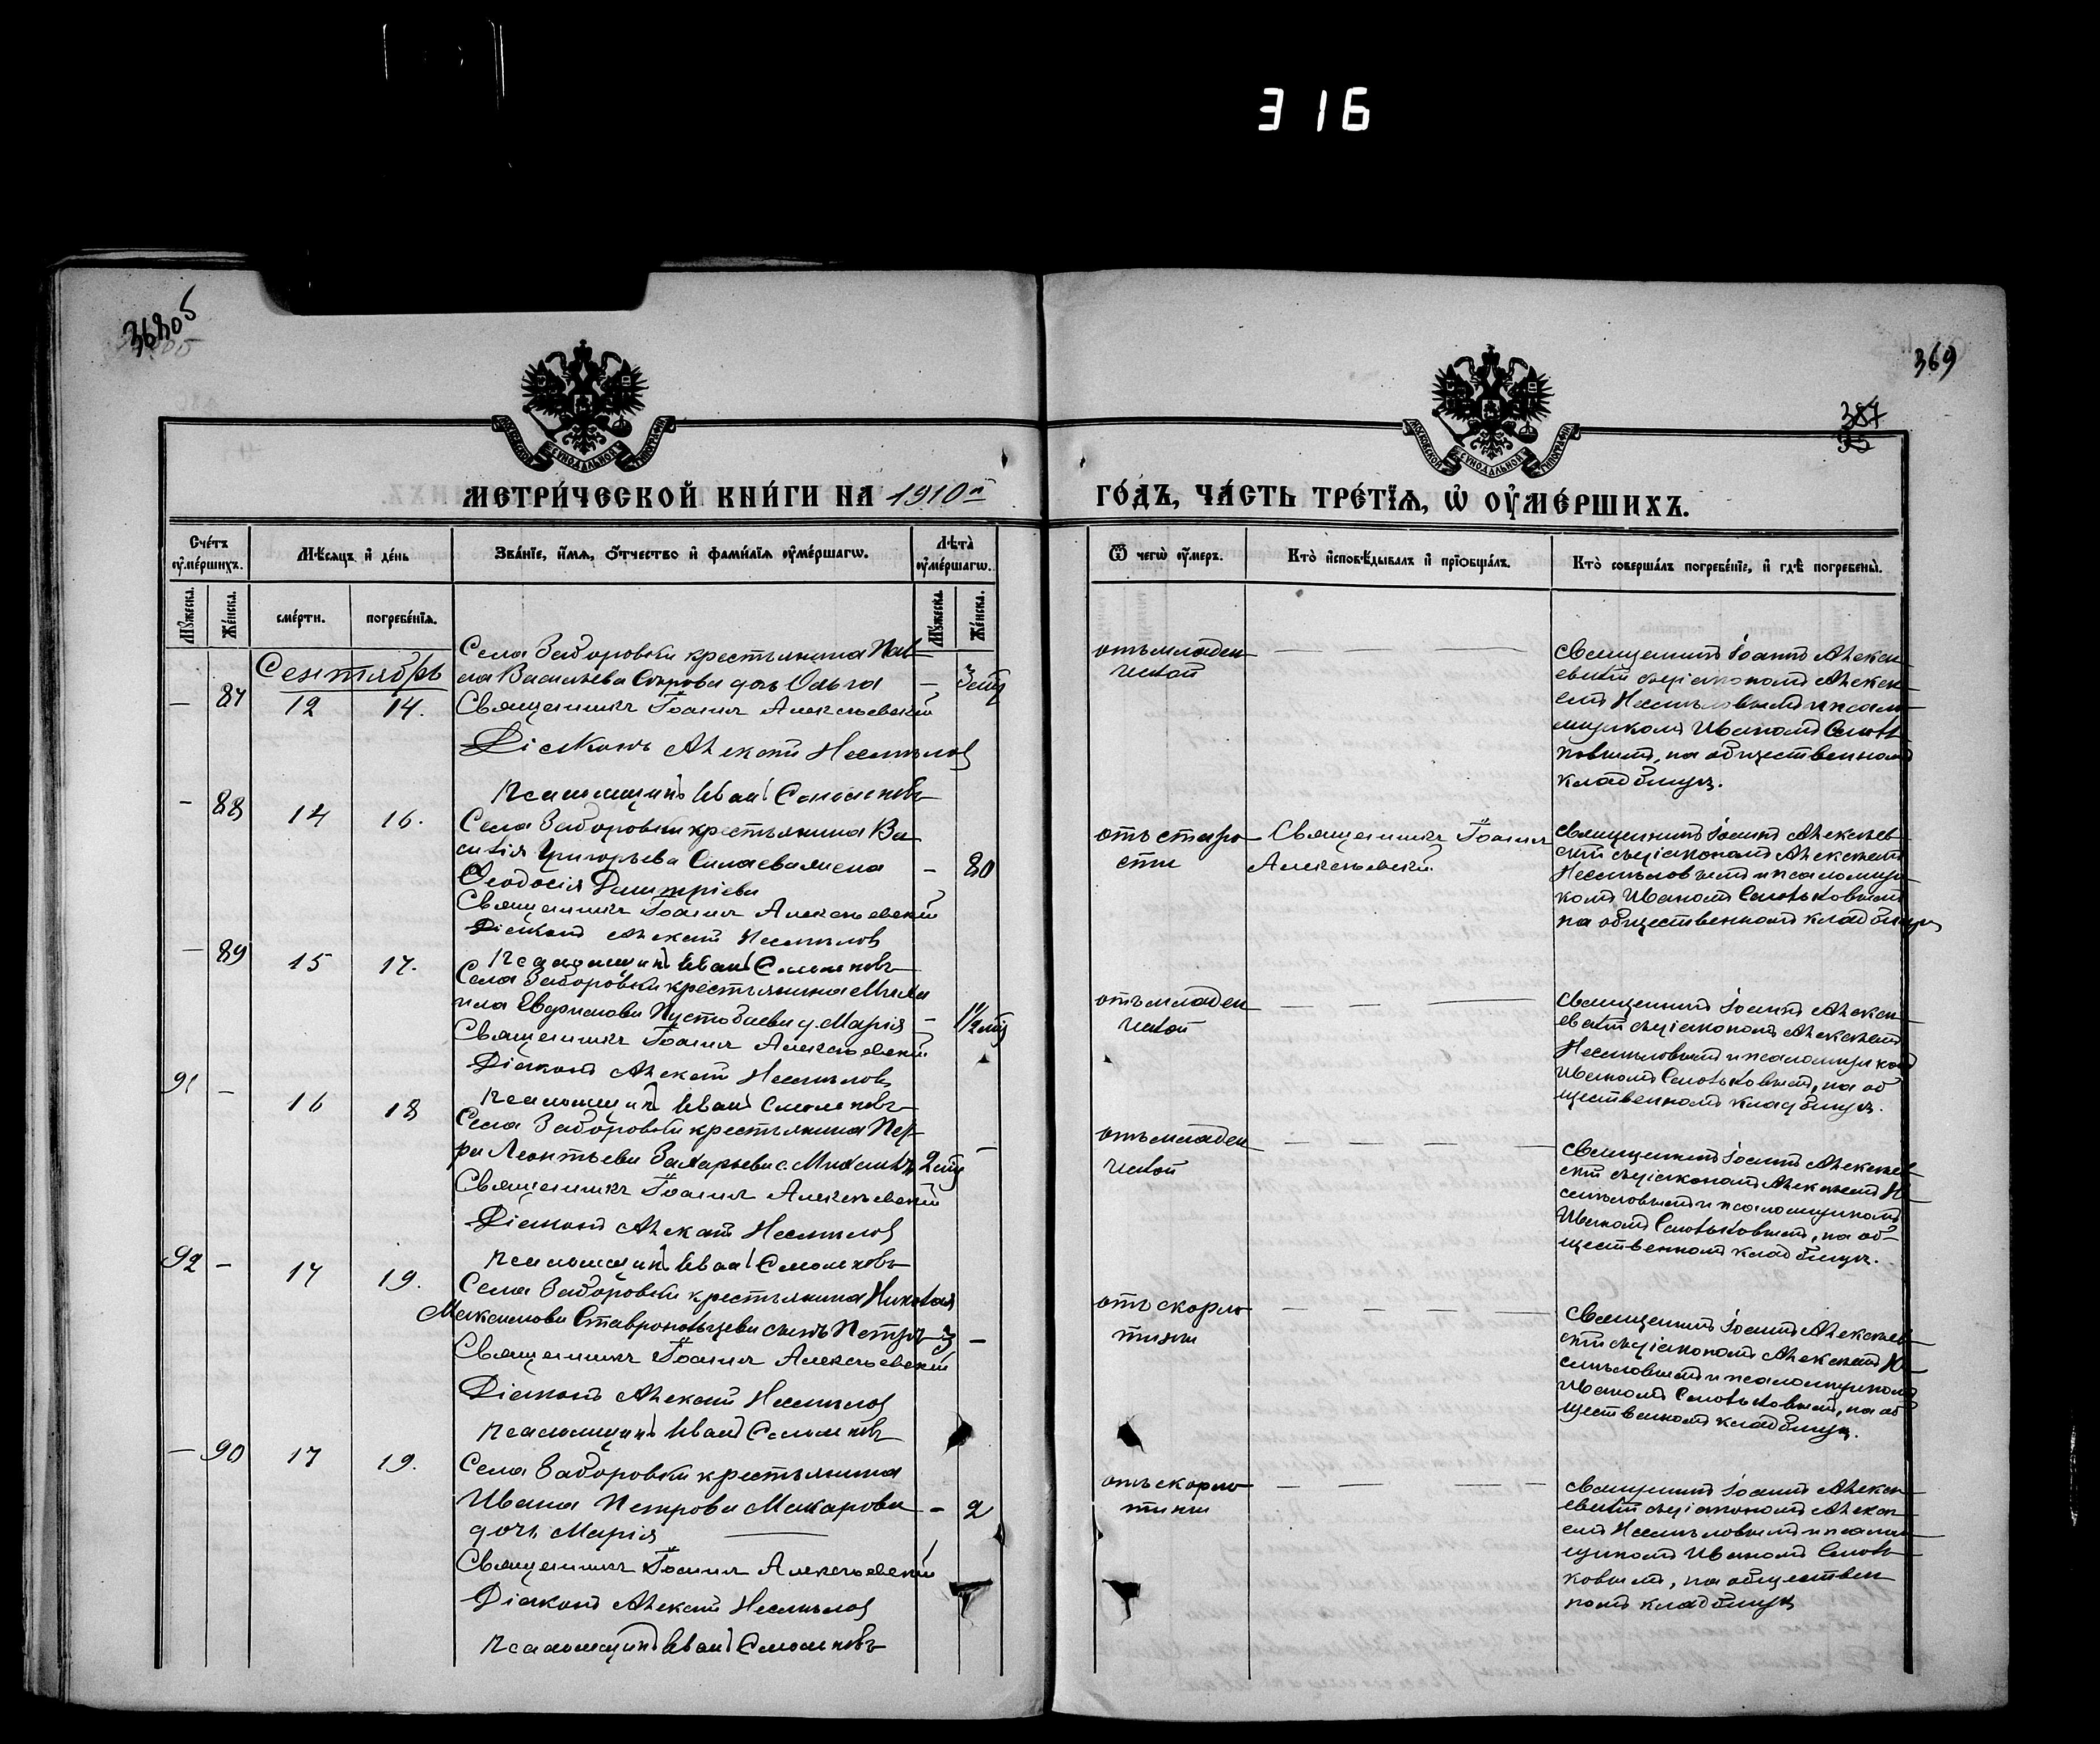 316
369
387
МЕТРИ́ЧЕСКОЙ КНИ́ГИ НА 1910й
ГО́ДЪ, ЧА́СТЬ ТРЕ́ТІѦ, Ѡ҆ ОУ҆МЕ́РШИХЪ.
Сче́тъ оу҆ме́ршихъ.
Мѣ́сяцъ и҆ де́нь
Зва́нїе, и҆́мя, ѻ҆́тчество и҆ фами́лїя оу҆ме́ршагѡ.
Лѣ́та оу҆ме́ршагѡ.
Мꙋ́жеска.
Же́нска.
сме́рти.
погребе́нїя.
Мꙋ́жеска.
Же́нска.
Ѿ чегѡ̀ оу҆́меръ.
Кто̀ и҆сповѣ́дывалъ и҆ прїѡбща́лъ.
Кто̀ соверша́лъ погребе́нїе, и҆ гдѣ̀ погребены̀.
Сентябрь
— 87 12 14.
Села Заборовки крестьянина Пав
ла Васильева дочь Ольга — 3 мц
Священникъ Іоаннъ Алексеевскій
Діаконъ Алексѣй Несмѣловъ
Псаломщикъ Иванъ
отъ младен
ческой
Священникъ Іоаннъ Алексе
евскій съ діакономъ Алексе
емъ Несмѣловымъ и псалом
щикомъ Иваномъ
на общественномъ
кладбищѣ.
— 88 14 16.
Села Заборовки крестьянина Ва
силія Григорьева Силаева жена — 80
Ѳеодосія Димитріева
Священникъ Іоаннъ Алексеевскій
Діаконъ Алексѣй Несмѣловъ
Псаломщикъ Иванъ
отъ старо
сти
Священникъ Іоаннъ
Алексеевскій.
Священникъ Іоаннъ Алексеев
скій съ діакономъ Алексеемъ
Несмѣловымъ и псаломщи
комъ Иваномъ
на общественномъ кладбищѣ
— 89 15 17.
Села Заборовки крестьянина Миха
ила Евдокимова Пустобаева д. Марія — 1½ мц
Священникъ Іоаннъ Алексеевскій
Діаконъ Алексѣй Несмѣловъ
Псаломщикъ Иванъ
отъ младен
ческой
Священникъ Іоаннъ Алексе
евскій съ діакономъ Алексеемъ
Несмѣловымъ и псаломщикомъ
Иваномъ на об
щественномъ кладбищѣ.
91 — 16 18
Села Заборовки крестьянина Пет
ра Леонтьева Захарьева с. Михаилъ 2 мц —
Священникъ Іоаннъ Алексеевскій
Діаконъ Алексѣй Несмѣловъ
Псаломщикъ Иванъ
отъ младен
ческой
Священникъ Іоаннъ Алексеев
скій съ діакономъ Алексеемъ Не
смѣловымъ и псаломщикомъ
Иваномъ на об-
щественномъ кладбищѣ.
92 — 17 19.
Села Заборовки крестьянина Николая
Максимова Ставропольцева сынъ Петръ 3 —
Священникъ Іоаннъ Алексеевскій
Діаконъ Алексѣй Несмѣловъ
Псаломщикъ Иванъ
отъ скарла
тины
Священникъ Іоаннъ Алексеев
скій съ діакономъ Алексеемъ Не
смѣловымъ и псаломщикомъ
Иваномъ на об
щественномъ кладбищѣ.
— 90 17 19.
Села Заборовки крестьянина
Ивана Петрова Макарова — 2
дочь Марія
Священникъ Іоаннъ Алексеевскій
Діаконъ Алексѣй Несмѣловъ
Псаломщикъ Иванъ
отъ скарла
тины
Священникъ Іоаннъ Алексе
евскій съ діакономъ Алексе
емъ Несмѣловымъ и псалом
щикомъ Иваномъ
на обществен
номъ кладбищѣ